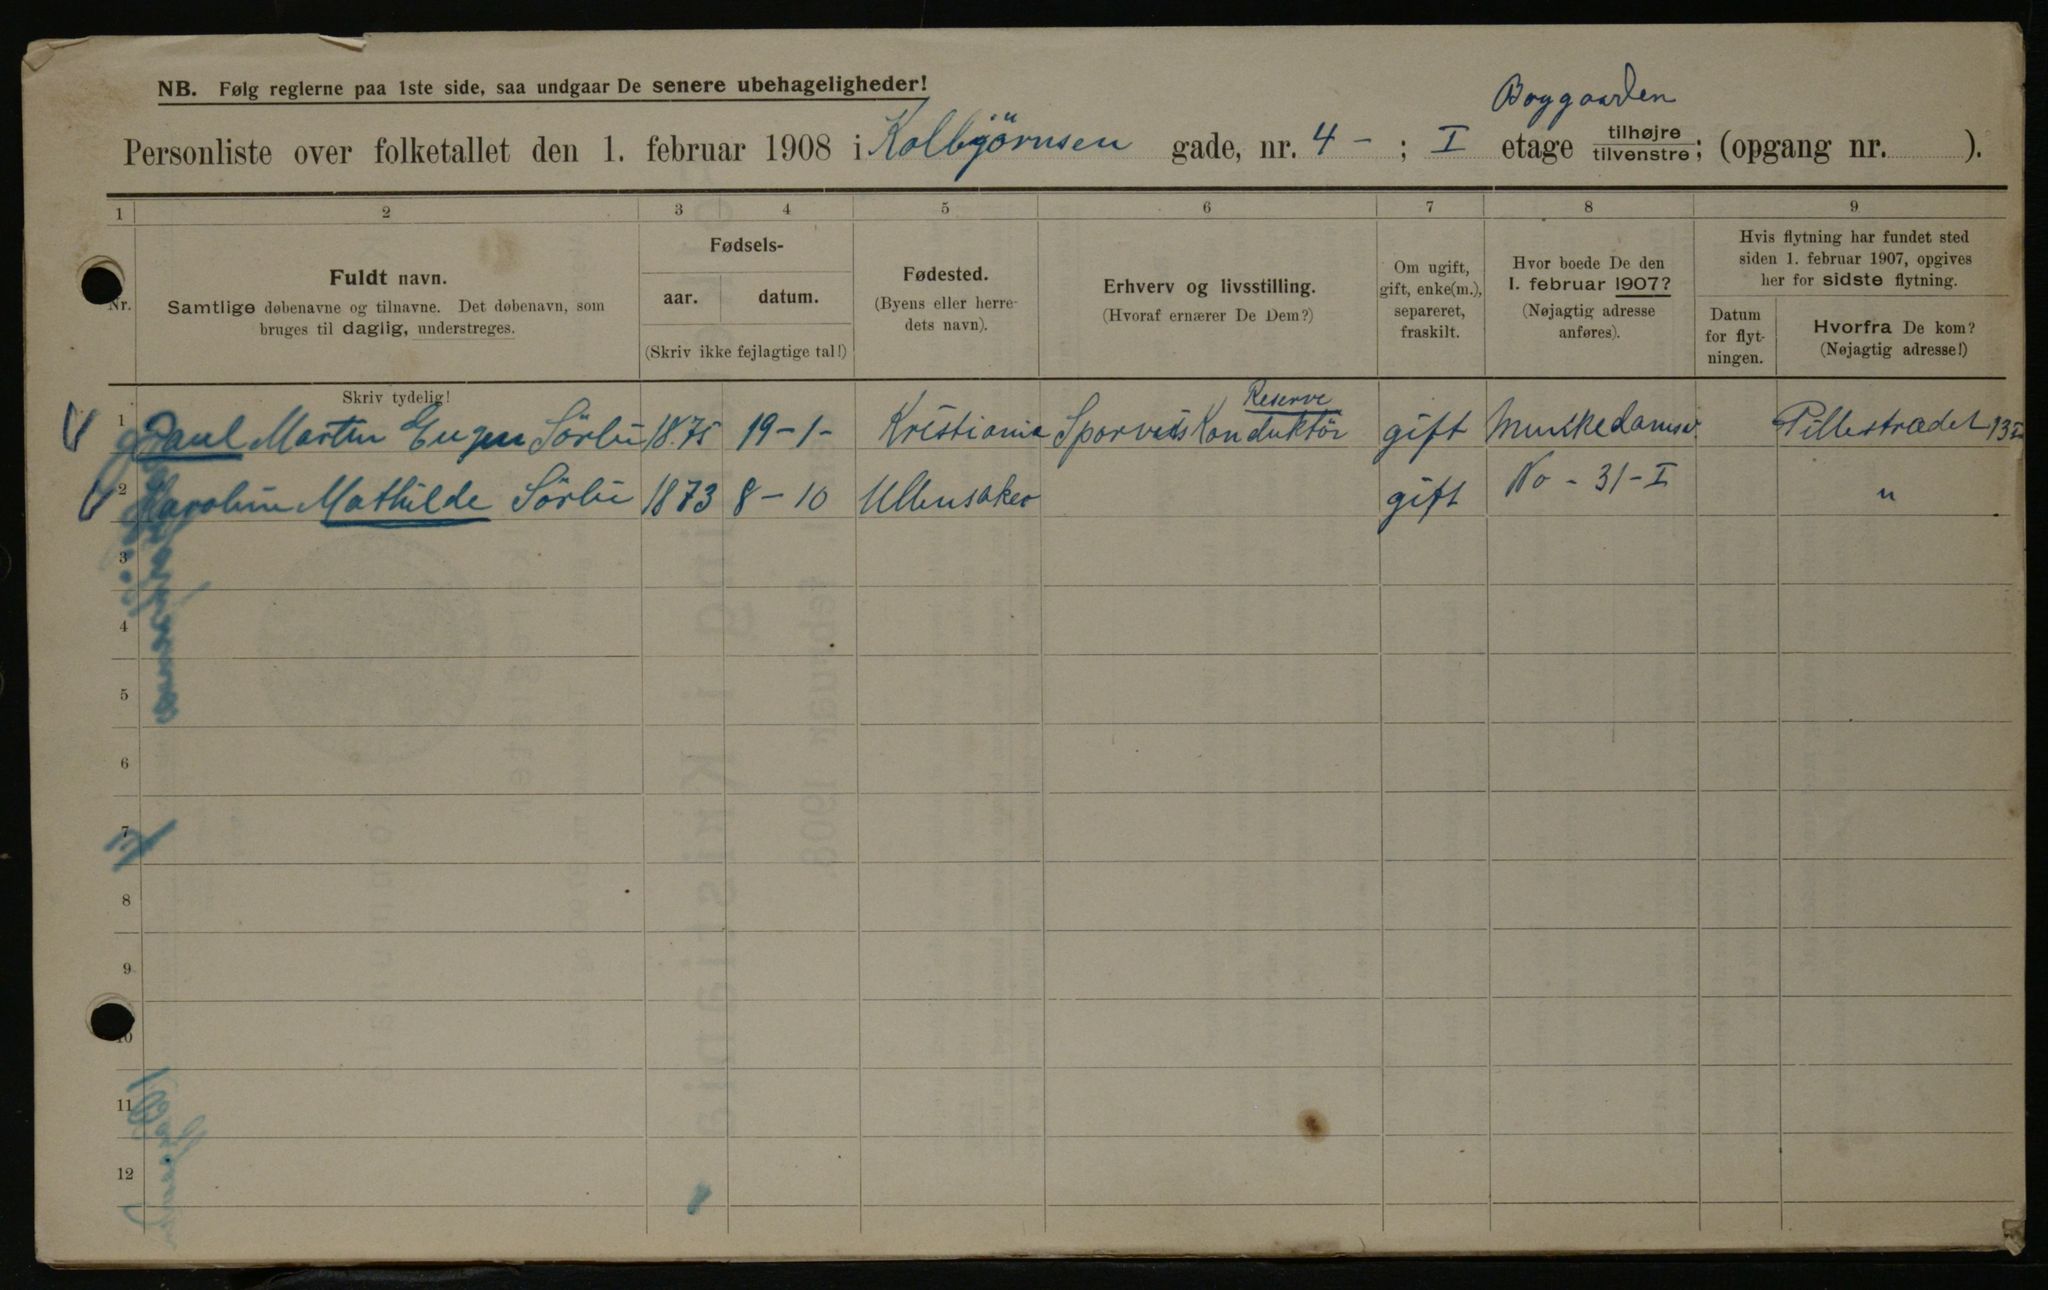 Boggaarden
NB. Følg reglerne paa 1ste side, saa undgaar De senere ubehageligheder!
Personliste over folketallet den 1. februar 1908 i Kolbjörnsen gade, nr. 4 - ; I etage tilhøjre tilvenstre; (opgang nr. ).
1 2 3 4 5 6 7 8 9
Nr.
Fuldt navn.
Samtlige døbenavne og tilnavne. Det døbenavn, som
bruges til daglig, understreges.
Skriv tydelig!
Fødsels-
aar. datum.
(Skriv ikke fejlagtige tal!)
Fødested.
(Byens eller herre-
dets navn).
Erhverv og livsstilling.
(Hvoraf ernærer De Dem?)
Om ugift,
gift, enke(m.),
separeret,
fraskilt.
Hvor boede De den
1. februar 1907?
(Nøjagtig adresse
anføres).
Hvis flytning har fundet sted
siden 1. februar 1907, opgives
her for sidste flytning.
Datum
for flyt-
ningen.
Hvorfra De kom?
(Nøjagtig adresse!)
Reserve
1 Paul Martin Eugen Sörlie 1875 19-1- Kristiania Sporveis Konduktör gift Munkedamsv. Pillestrædet 13 I
2 Karoline Mathilde Sörlie 1873 8-10 Ullensaker gift No - 31 - I "
3
4
5
6
7
8
9
10
11
12